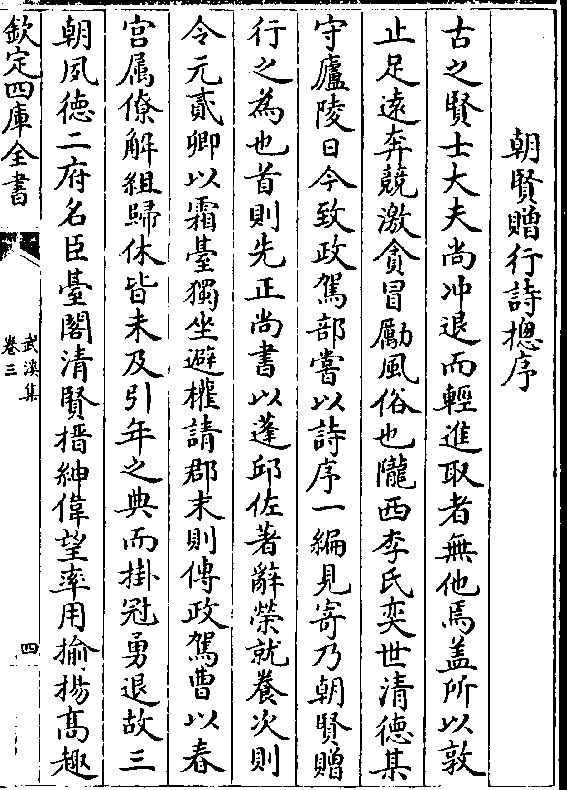 朝賢贈行詩摠序
古之賢士大夫尚冲退而輕進取者無他焉盖所以敦
止足逺奔競激貪冒勵風俗也隴西李氏奕世清德某
守廬陵日今致政駕部嘗以詩序一編見寄乃朝賢贈
行之為也首則先正尚書以蓬邱佐著辭榮就養次則
令元貳卿以霜臺獨坐避權請郡末則傅政駕曹以春
宫属僚解組歸休皆未及引年之典而掛冠勇退故三
朝夙德二府名臣臺閣清賢搢紳偉望率用揄揚髙趣
欽定四庫全書
武溪集
卷三
四